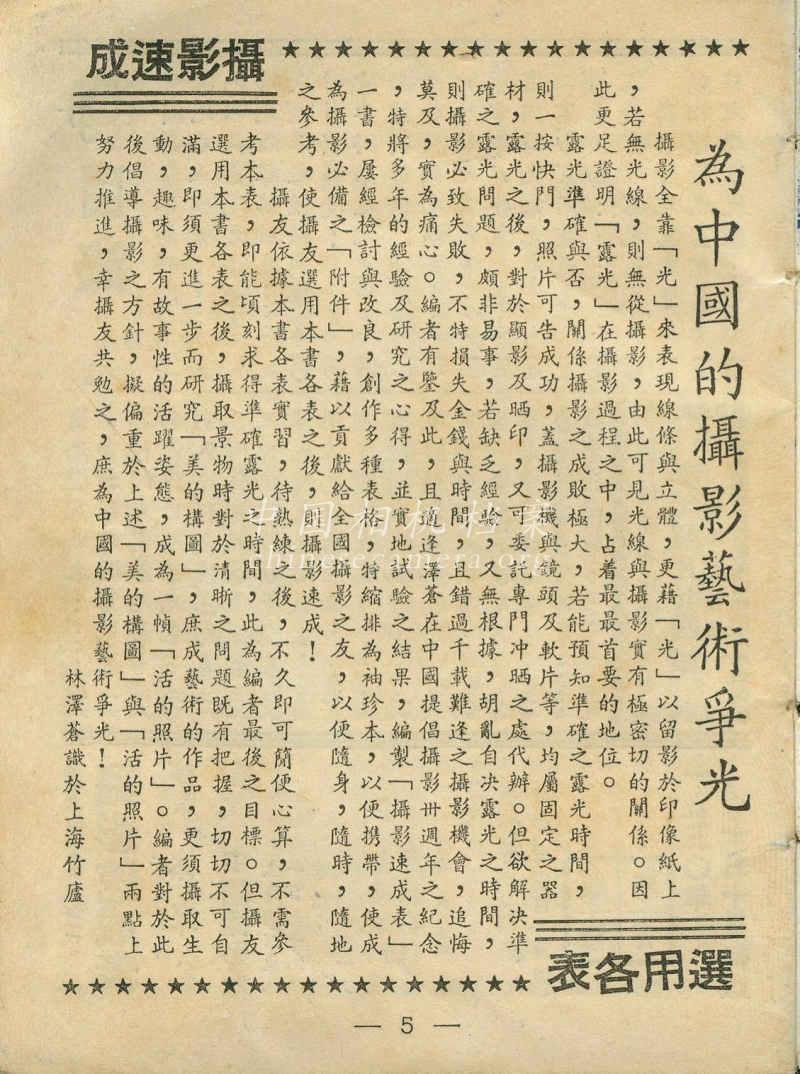 為中國的攝影藝術爭光
攝影全靠「光」來表現線條與立體，更藉「光」以留影於印像紙上
，若無光線，則無從攝影，由此可見光線與攝影實有極密切的關係。因
此更足證明「露光」在攝影過程之中，占着最最首要的地位。
露光準確與否，關係攝影之成敗極大，若能預知準確之露光時間，
則一按快門，照片可告成功，蓋攝影機與鏡頭及軟片等，均屬固定之器
材，露光之後，對於顯影及晒印，又可委託專門冲晒之處代辦。但欲解決準
確之露光問題，頗非易事，若缺乏經驗，又無根據，胡亂自決露光之時間，
則攝影必致失敗，不特損失金錢與時間，且錯過千載難逢之攝影機會，追悔
莫及，實為痛心。編者有鑒及此，且適逢澤蒼在中國提倡攝影卅週年之紀念
，特將多年的經驗及研究之心得，並實地試驗之結果，編製「攝影速成表」
一書，屢經檢討與改良，創作多種表格，特縮排為袖珍本，以便携帶，使成
為攝影必備之「附件」，藉以貢獻給全國攝影之友，以便隨身，隨時，隨地
之參考，使攝友選用本書各表之後，則攝影速成！
攝友依據本書各表實習，待熟練之後，不久即可簡便心算，不需參
考本表，即能頃刻求得準確露光之時間，此為編者最後之目標。但攝友
選用本書各表之後，攝取景物時對於清晰之問題既有把握，切切不可自
滿，即須更進一步而研究「美的構圖」，庶成藝術的作品，更須攝取生
動，趣味，有故事性的活躍姿態，成為一幀「活的照片」。編者對於此
後倡導攝影之方針，擬偏重於上述「美的構圖」與「活的照片」兩點上
努力推進，幸攝友共勉之，庶為中國的攝影藝術爭光！
林澤蒼識於上海竹廬
攝影速成
選用各表
— 5 —